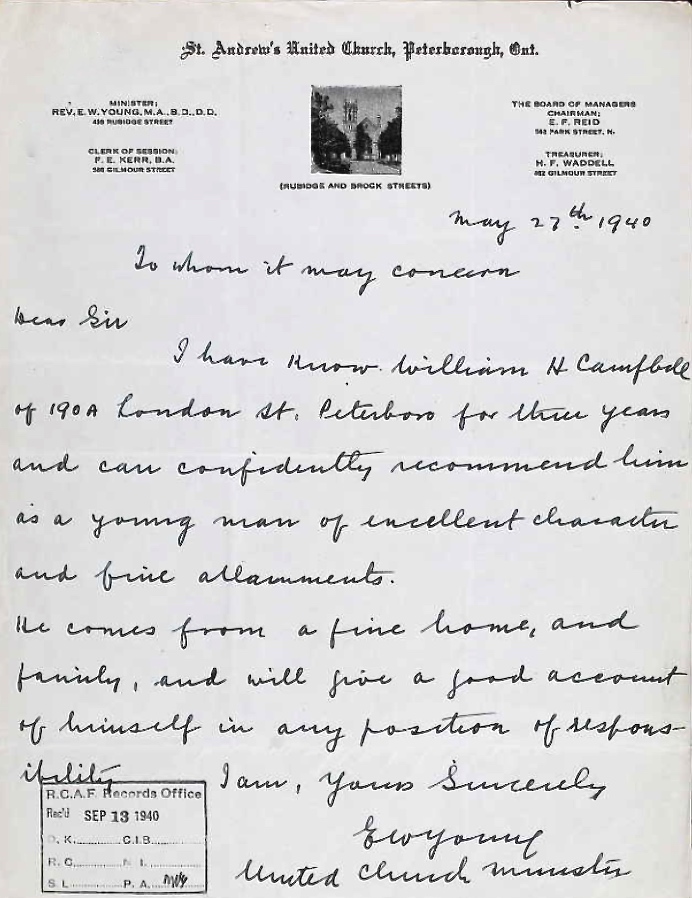 St. Andrew's United Church, Peterborough, Ont.
MINISTER:
REV. E. W. YOUNG, M.A., B.D., D.D.
438 RUBIDGE STREET
CLERK OF SESSION:
F. E. KERR, B.A.
588 GILMOUR STREET
(RUBIDGE AND BROCK STREETS)
THE BOARD OF MANAGERS
CHAIRMAN:
E. F. REID
PARK STREET, N.
TREASURER:
H. F. WADDELL
GILMOUR STREET
May 27th 1940
To whom it may concern
Dear Sir
I have know William H Campbell
of 190A London St. Peterboro for three years
and can confidently recommend him
as a young man of excellent character
and fine attainments.
He comes from a fine home, and
family, and will give a good account
of himself in any position of respons-
ibility
I am, Yours Sincerely
E W Young
United Church Minister
R.C.A.F. Records Office
Rec'd SEP 13 1940
O. K. C.I.B.
R. C. N. I.
S. L. P. A.